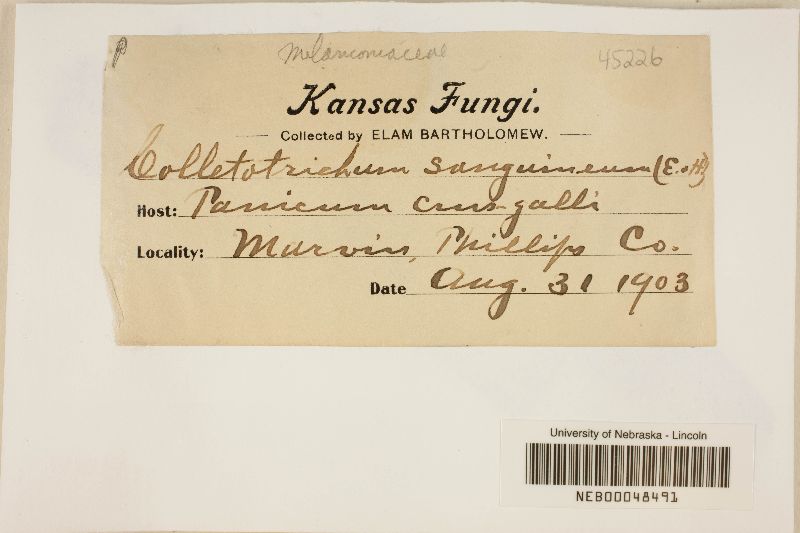 Melanconiaceae
45226
Kansas Fungi.
Collected by ELAM BARTHOLOMEW.
Colletotrichum sanguineum (E. & H)
Host: Panicum crus-galli
Locality: Marvin, Phillips Co.
Date Aug. 31 1903
University of Nebraska - Lincoln
NEB00048491